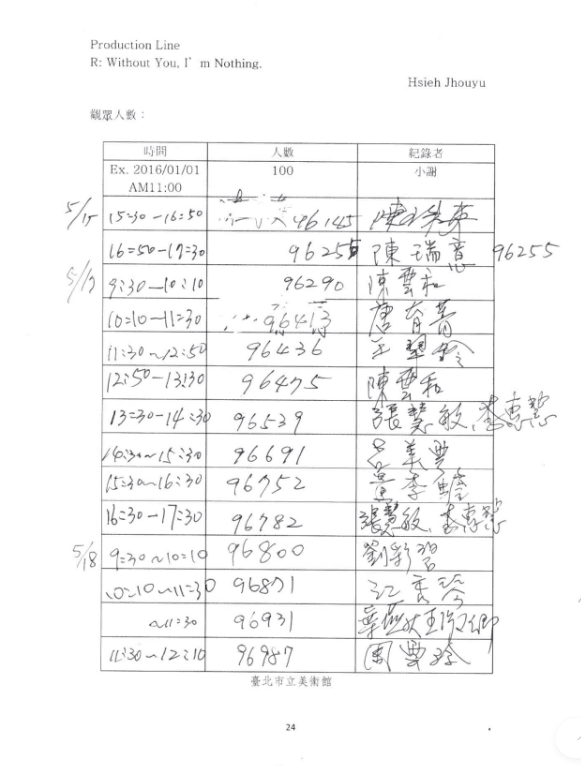 Production Line
R: Without You, I'm Nothing.
Hsieh Jhouyu
觀眾人數：
時間 人數 紀錄者
Ex. 2016/01/01 AM11:00 100 小謝
5/15 15:30-16:50 96145 陳
16:50-17:30 96255 陳瑞意 96255
5/17 9:30-10:10 96290 陳雲和
10:10-11:30 96413 唐
11:30~12:50 96436 王翠
12:50-13:30 96475 陳雲和
13:30-14:30 96539 張慧敏、李惠慧
14:30~15:30 96691 呂美豐
15:30~16:30 96752
16:30-17:30 96782 張慧敏、李惠慧
5/18 9:30~10:10 96800 劉彩
10:10~11:30 96871 江
~11:30 96931 葉
11:30~12:10 96987 周豐
臺北市立美術館
24